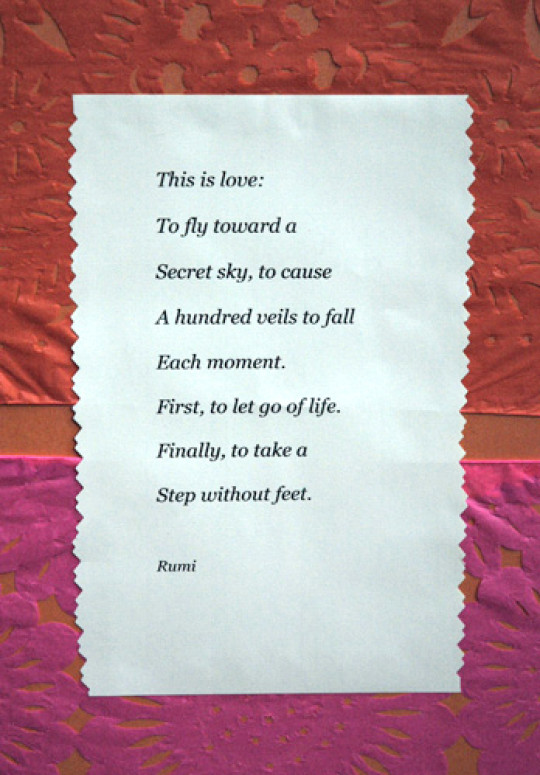 This is love:
To fly toward a
Secret sky, to cause
A hundred veils to fall
Each moment.
First, to let go of life.
Finally, to take a
Step without feet.
Rumi